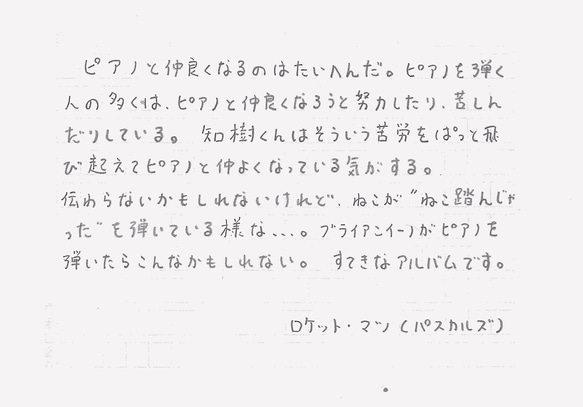 ピアノと仲良くなるのはたいへんだ。ピアノを弾く
人の多くは、ピアノと仲良くなろうと努力したり、苦しん
だりしている。 知樹くんはそういう苦労をぱっと飛
び起えてピアノと仲よくなっている気がする。
伝わらないかもしれないけれど、ねこが“ねこ踏んじゃ
った”を弾いている様な...。ブライアンイーノがピアノを
弾いたらこんなかもしれない。 すてきなアルバムです。
ロケット・マツ(パスカルズ)